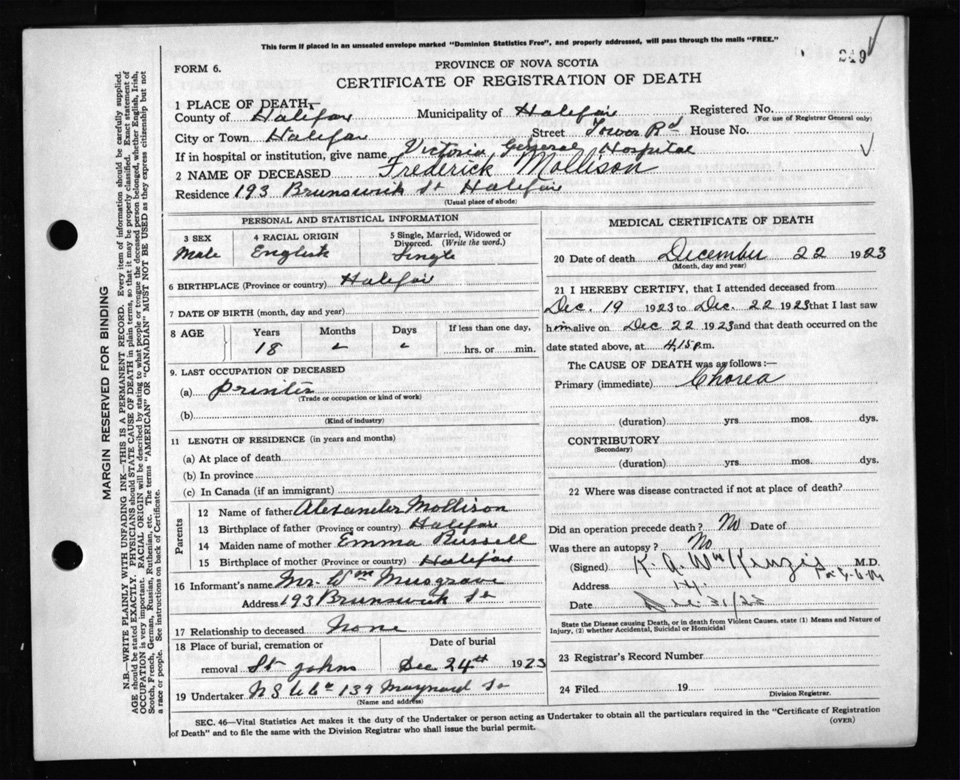 This form if placed in an unsealed envelope marked "Dominion Statistics Free", and properly addressed, will pass through the mails "FREE."
249
FORM 6.
PROVINCE OF NOVA SCOTIA
CERTIFICATE OF REGISTRATION OF DEATH
1 PLACE OF DEATH,—
County of Halifax Municipality of Halifax Registered No.
(For use of Registrar General only)
City or Town Halifax Street Tower Rd House No.
If in hospital or institution, give name Victoria General Hospital
2 NAME OF DECEASED Frederick Mollison
Residence 193 Brunswick St Halifax
(Usual place of abode)
PERSONAL AND STATISTICAL INFORMATION
3 SEX 4 RACIAL ORIGIN 5 Single, Married, Widowed or Divorced. (Write the word.)
Male English Single
6 BIRTHPLACE (Province or country) Halifax
7 DATE OF BIRTH (month, day and year)
8 AGE Years Months Days If less than one day,
18 " " hrs. or min.
9. LAST OCCUPATION OF DECEASED
(a) printer
(Trade or occupation or kind of work)
(b)
(Kind of industry)
11 LENGTH OF RESIDENCE (in years and months)
(a) At place of death
(b) In province
(c) In Canada (if an immigrant)
Parents
12 Name of father Alexander Mollison
13 Birthplace of father (Province or country) Halifax
14 Maiden name of mother Emma Russell
15 Birthplace of mother (Province or country) Halifax
16 Informant's name Mr. Wm Musgrave
Address 193 Brunswick St
17 Relationship to deceased None
18 Place of burial, cremation or removal St Johns Date of burial Dec 24th 1923
19 Undertaker N S U Co 139 Maynard St
(Name and address)
MEDICAL CERTIFICATE OF DEATH
20 Date of death December 22 1923
(Month, day and year)
21 I HEREBY CERTIFY, that I attended deceased from
Dec. 19 1923 to Dec. 22 1923 that I last saw
him alive on Dec 22 1923 and that death occurred on
date stated above, at 4.15 p.m.
The CAUSE OF DEATH was as follows:—
Primary (immediate) Chorea
(duration) yrs. mos. dys.
CONTRIBUTORY
(Secondary)
(duration) yrs. mos. dys.
22 Where was disease contracted if not at place of death?
Did an operation precede death? No Date of
Was there an autopsy? No
(Signed) M.D.
Address
Date Dec 31/23
State the Disease causing Death, or in death from Violent Causes, state (1) Means and Nature of Injury, (2) whether Accidental, Suicidal or Homicidal
23 Registrar's Record Number
24 Filed 19
Division Registrar.
SEC. 46—Vital Statistics Act makes it the duty of the Undertaker or person acting as Undertaker to obtain all the particulars required in the "Certificate of Registration
of Death" and to file the same with the Division Registrar who shall issue the burial permit.
(OVER)
MARGIN RESERVED FOR BINDING
N.B.—WRITE PLAINLY WITH UNFADING INK—THIS IS A PERMANENT RECORD. Every item of information should be carefully supplied.
AGE should be stated EXACTLY. PHYSICIANS should STATE CAUSE OF DEATH in plain terms, so that it may be properly classified. Exact statement of
OCCUPATION is very important. RACIAL ORIGIN will be described by stating to what people or tongue the deceased person belonged, whether English, Irish,
Scotch, French, German, Russian, Ruthenian, etc. The terms "AMERICAN" or "CANADIAN" MUST NOT BE USED as they express citizenship but not
a race or people. See instructions on back of Certificate.